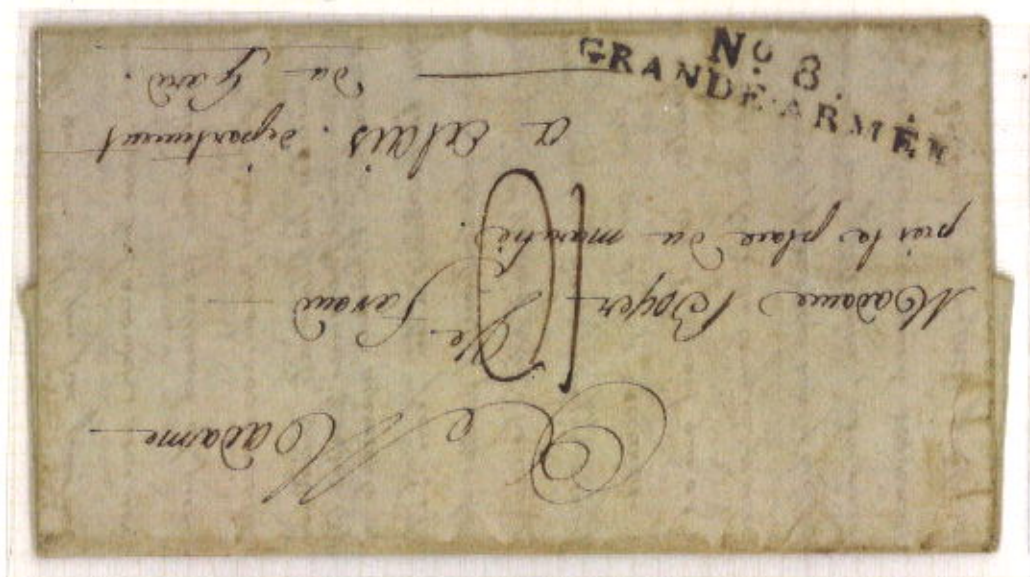 No. 8.
GRANDE ARMÉE
A Madame
Madame Boyer née Faraud
près la place du marché.
a alais. département
du Gard.